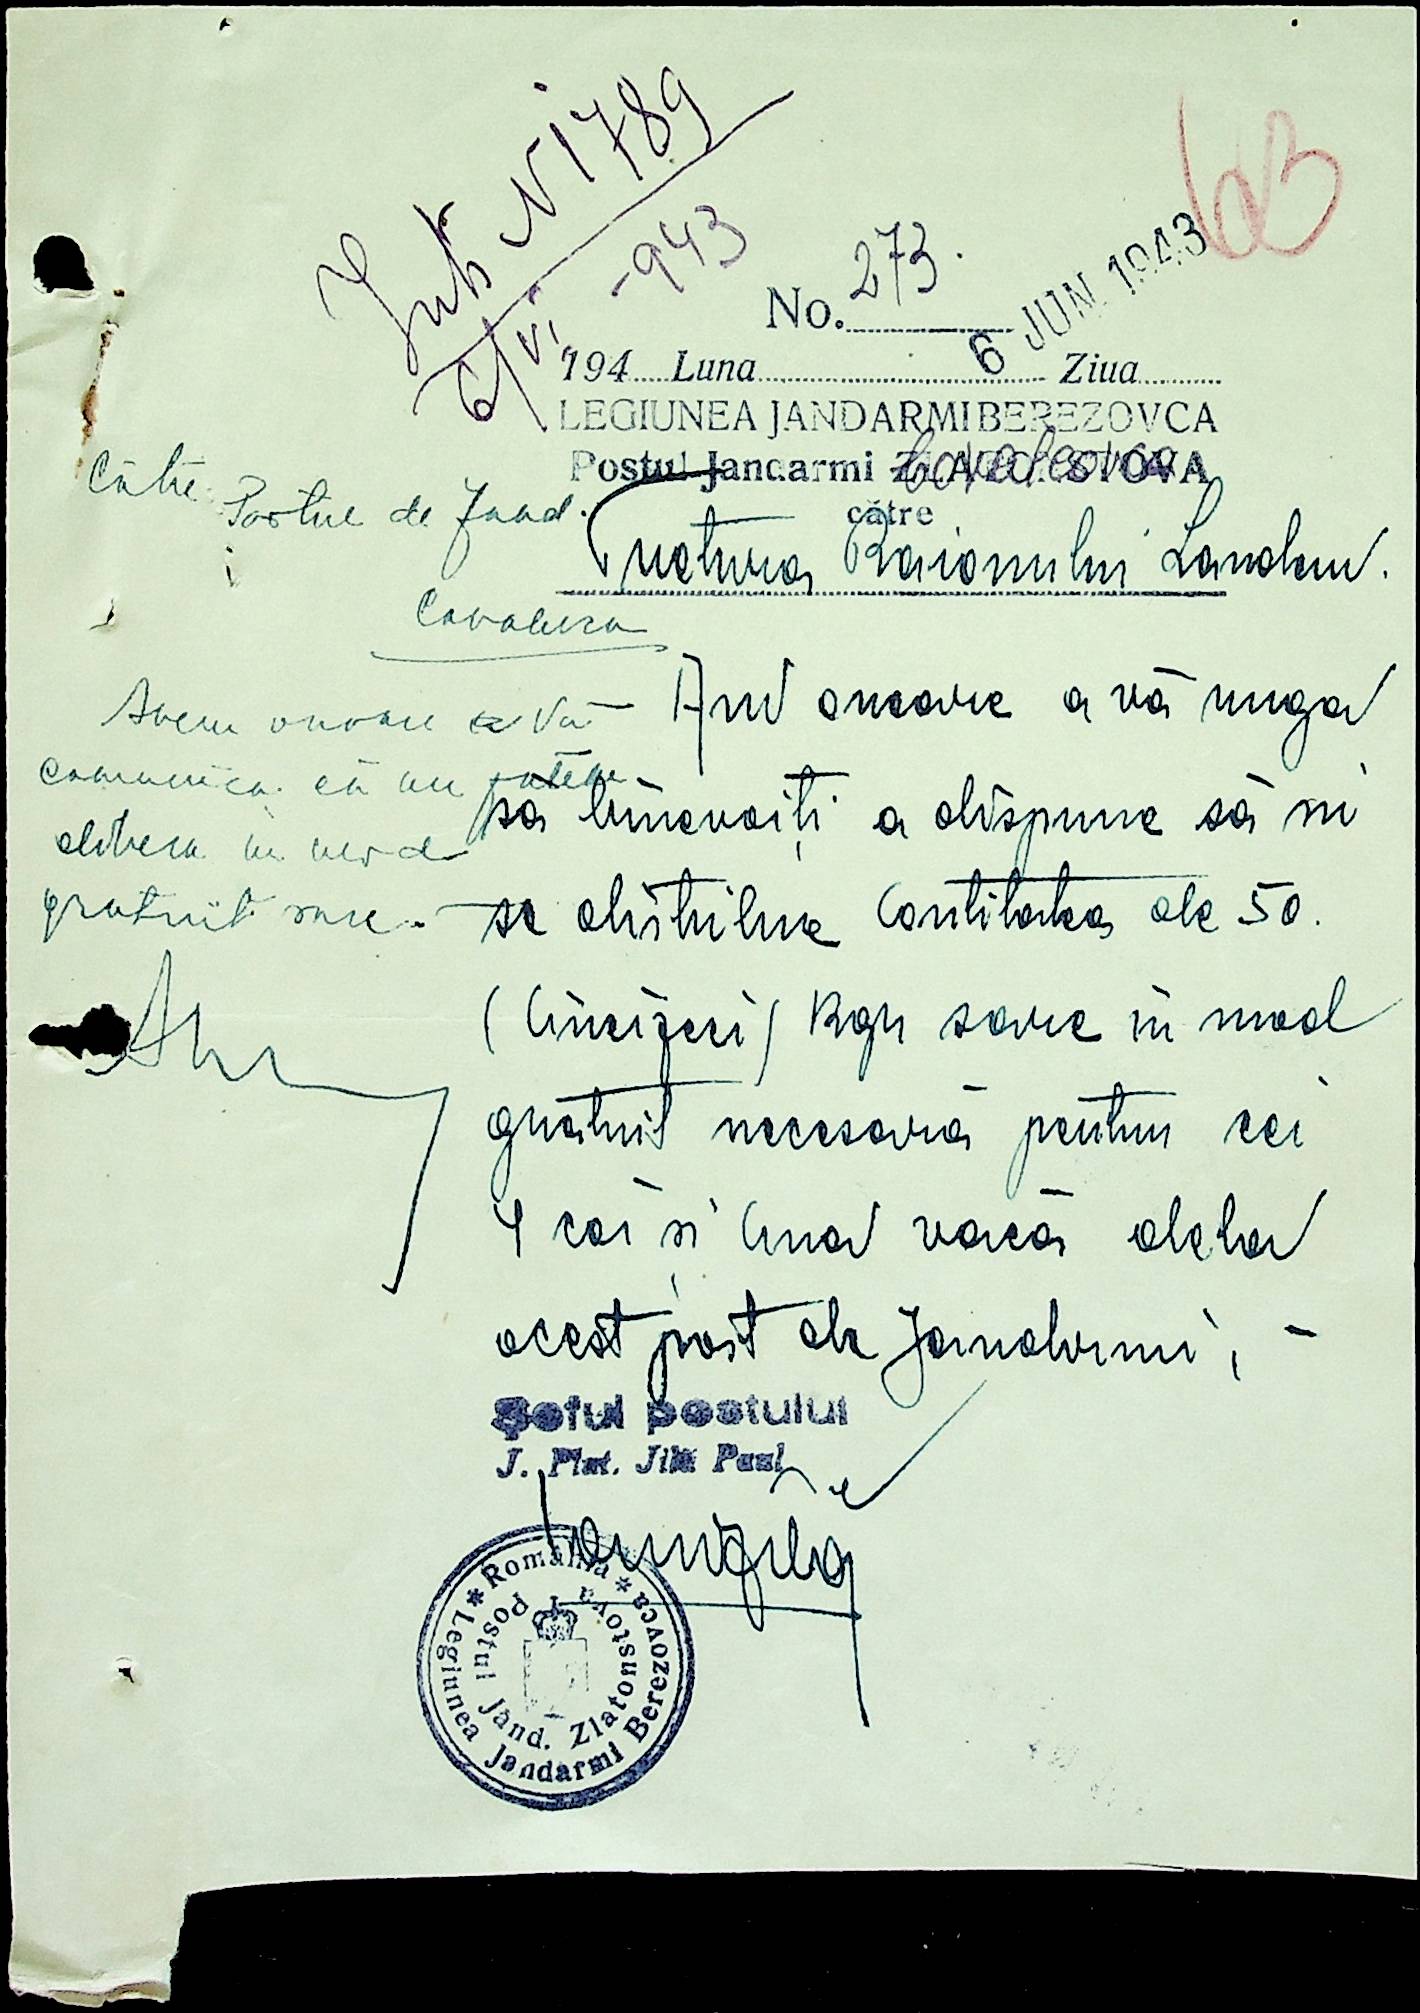 63
Intr. N 1789
6/VI -943
No. 273.
6 JUN. 1943
194 Luna Ziua
LEGIUNEA JANDARMI BEREZOVCA
Postul Jandarmi
către
Pretura Raionului Landau.
Către
Postul de Jand.
Am onoare a vă ruga
să binevoiți a dispune să ni
se distribue Cantitatea de 50.
(Cincizeci) Kgr sare în mod
gratuit necesară pentru cei
4 cai și Una vacă dela
acest post de Jandarmi, -
Avem onoare a Vă
comunica că nu putem
elibera în mod
gratuit sare.
Șeful postului
J. Plut. Jila Paul
* România *
Legiunea Jandarmi Berezovca
Postul Jand. Zlatoustova